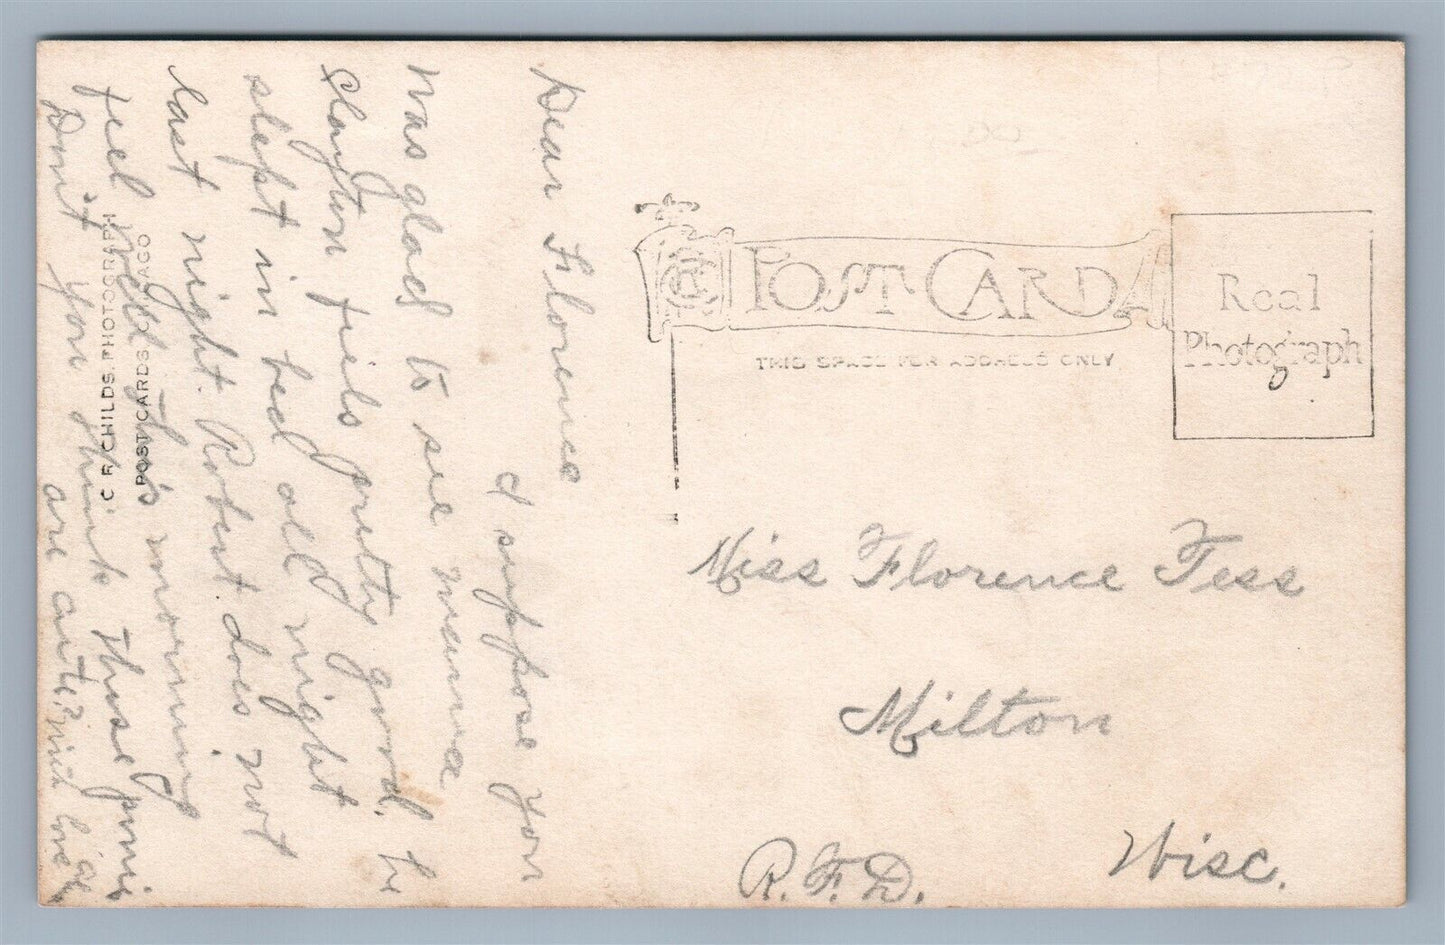 Dear Florence
I suppose you
was glad to see mama
Slayton feels pretty good. he
slept in bed all night
last night. Robert does not
feel well this morning
Don't you think those
are cute? love
C. R. CHILDS. PHOTOGRAPH
POST CARDS CHICAGO
POST CARD
THIS SPACE FOR ADDRESS ONLY
Real
Photograph
Miss Florence Tess
Milton
Wisc.
R.F.D.